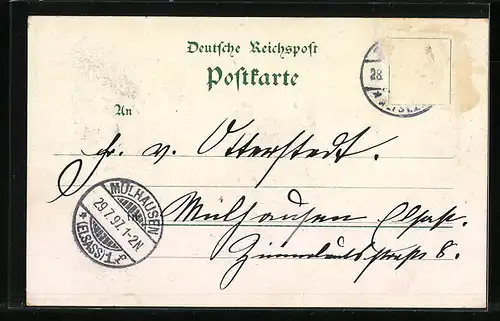 Deutsche Reichspost
Postkarte
An
Fr. v. Otterstedt.
in Mülhausen Elsaß.
8.
MÜLHAUSEN
29.7.97.1-2N
* (ELSASS) 1 f
28.